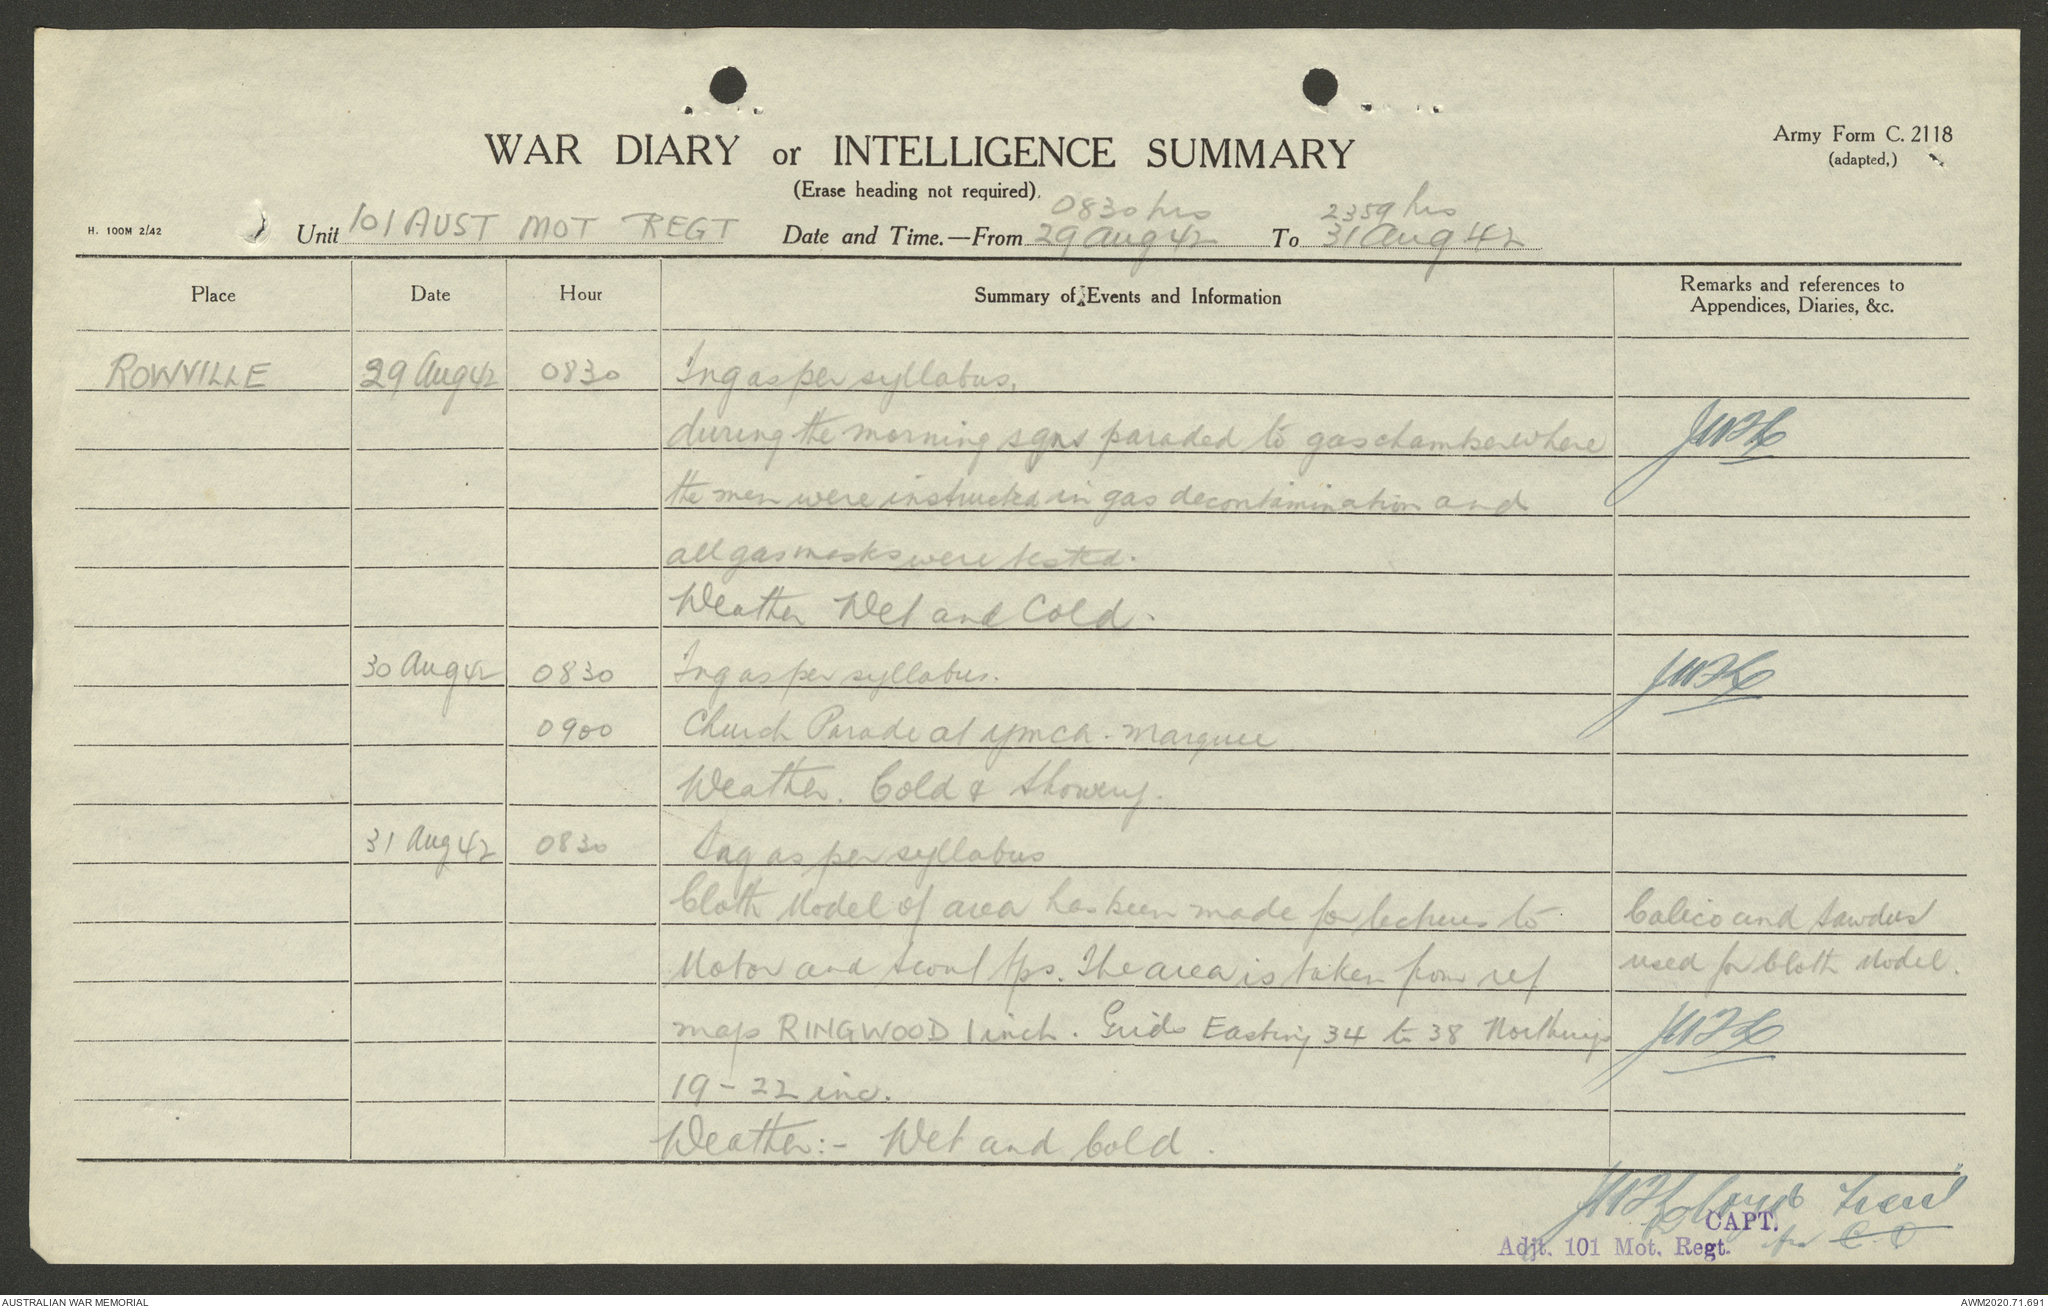 Army Form C. 2118
(adapted,)
WAR DIARY or INTELLIGENCE SUMMARY
(Erase heading not required).
H. 100M 2/42
0830 hrs 2359 hrs
Unit 101 AUST MOT REGT Date and Time.—From 29 Aug 42 To 31 Aug 42
Place Date Hour Summary of Events and Information Remarks and references to
Appendices, Diaries, &c.
ROWVILLE 29 Aug 42 0830 Trg as per syllabus.
during the morning sqns paraded to gas chamber where
the men were instructed in gas decontamination and
all gas masks were tested.
Weather Wet and Cold.
30 Aug 42 0830 Trg as per syllabus.
0900 Church Parade at YMCA. Marquee
Weather. Cold & Showery.
31 Aug 42 0830 Trg as per syllabus
Cloth Model of area has been made for lectures to Calico and Sawdust
Motor and Scout tps. The area is taken from ref used for Cloth Model.
map RINGWOOD 1 inch. Grids Easting 34 to 38 Northings
19 - 22 inc.
Weather:- Wet and Cold.
CAPT.
Adjt. 101 Mot. Regt. for C.O
AUSTRALIAN WAR MEMORIAL AWM2020.71.691